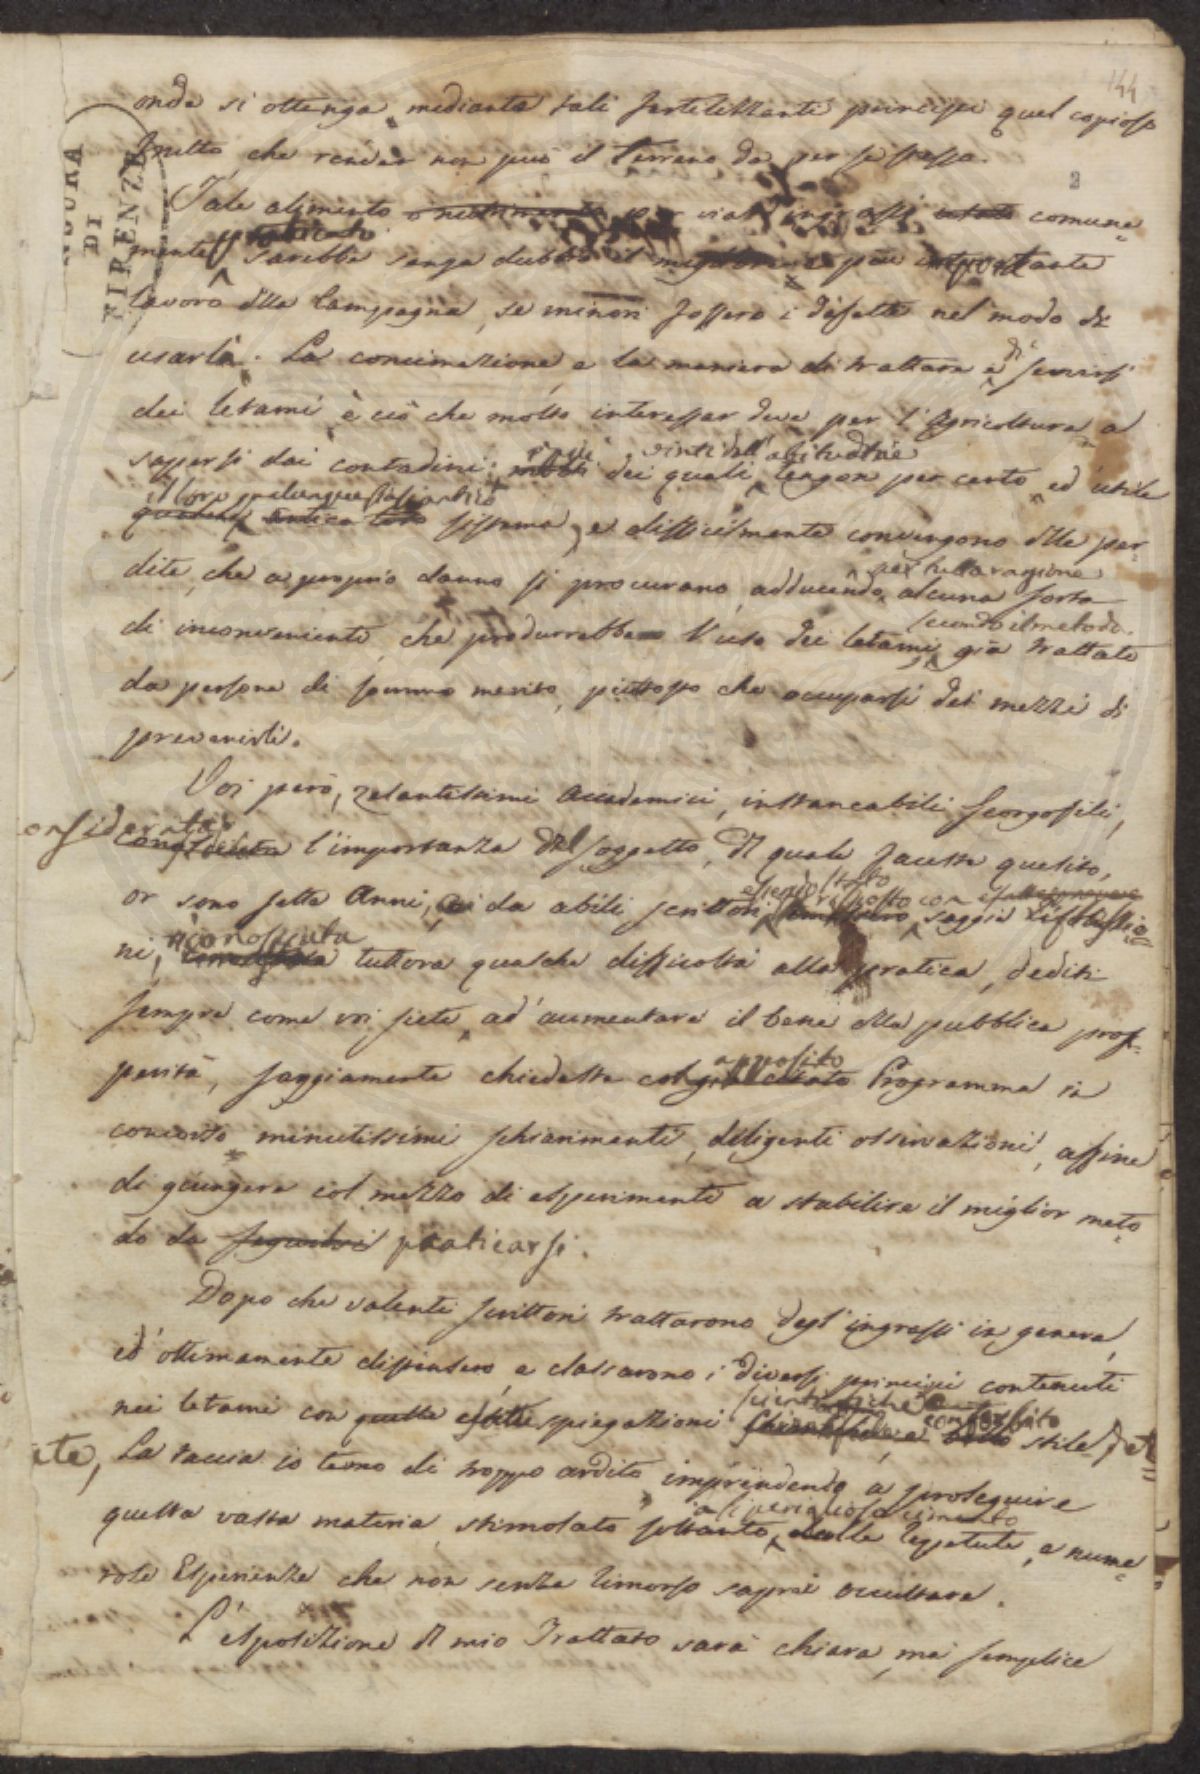 144
2
onde si ottenga mediante tali fertilizzanti principj quel copioso
frutto che render non può il Terreno da per se stesso.
Tale alimento o nutrimento per via d'ingrassi comune=
mente sarebbe senza dubbio il migliore e più importante
lavoro della Campagna, se minori fossero i difetti nel modo di
usarla. La concimazione e la maniera di trattare e di servirsi
dei letami è ciò che molto interessar deve per l'Agricoltura a
sapersi dai contadini; molti dei quali vinti dall'abitudine tengon per certo ed utile
il loro qualunque siasi antico sistema, e difficilmente convengono della per=
dita, che a proprio danno si procurano, adducendo per tutta ragione alcuna sorta
di inconveniente che produrrebbe l'uso dei letami secondo il metodo già trattato
da persone di sommo merito, piuttosto che occuparsi dei mezzi di
prevenirli.
Voi però, zelantissimi Accademici, instancabili Georgofili,
considerata l'importanza del soggetto, del quale faceste quesito,
or sono sette Anni, da abili scrittori essendo stato risposto con saggie riflessio=
ni, riconosciuta tuttora qualche difficoltà alla pratica, dediti
sempre come voi siete ad aumentare il bene della pubblica pros=
perità, saggiamente chiedeste col apposito già citato Programma in
concorso minutissimi schiarimenti, diligenti osservazioni, affine
di giungere col mezzo di esperimenti a stabilire il miglior meto=
do da seguirsi praticarsi.
Dopo che valenti scrittori trattarono degl'ingrassi in genere,
ed ottimamente distinsero, e classarono i diversi principj contenuti
nei letami con quelle esatte spiegazioni scientifiche e con forbito stile
La taccia io temo di troppo ardito imprendendo a proseguire
questa vasta materia, stimolato soltanto a sì periglioso cimento dalle ripetute, e nume=
rose Esperienze che non senza rimorso saprei occultare.
L'esposizione del mio Trattato sarà chiara, ma semplice
CENSURA
DI
FIRENZE